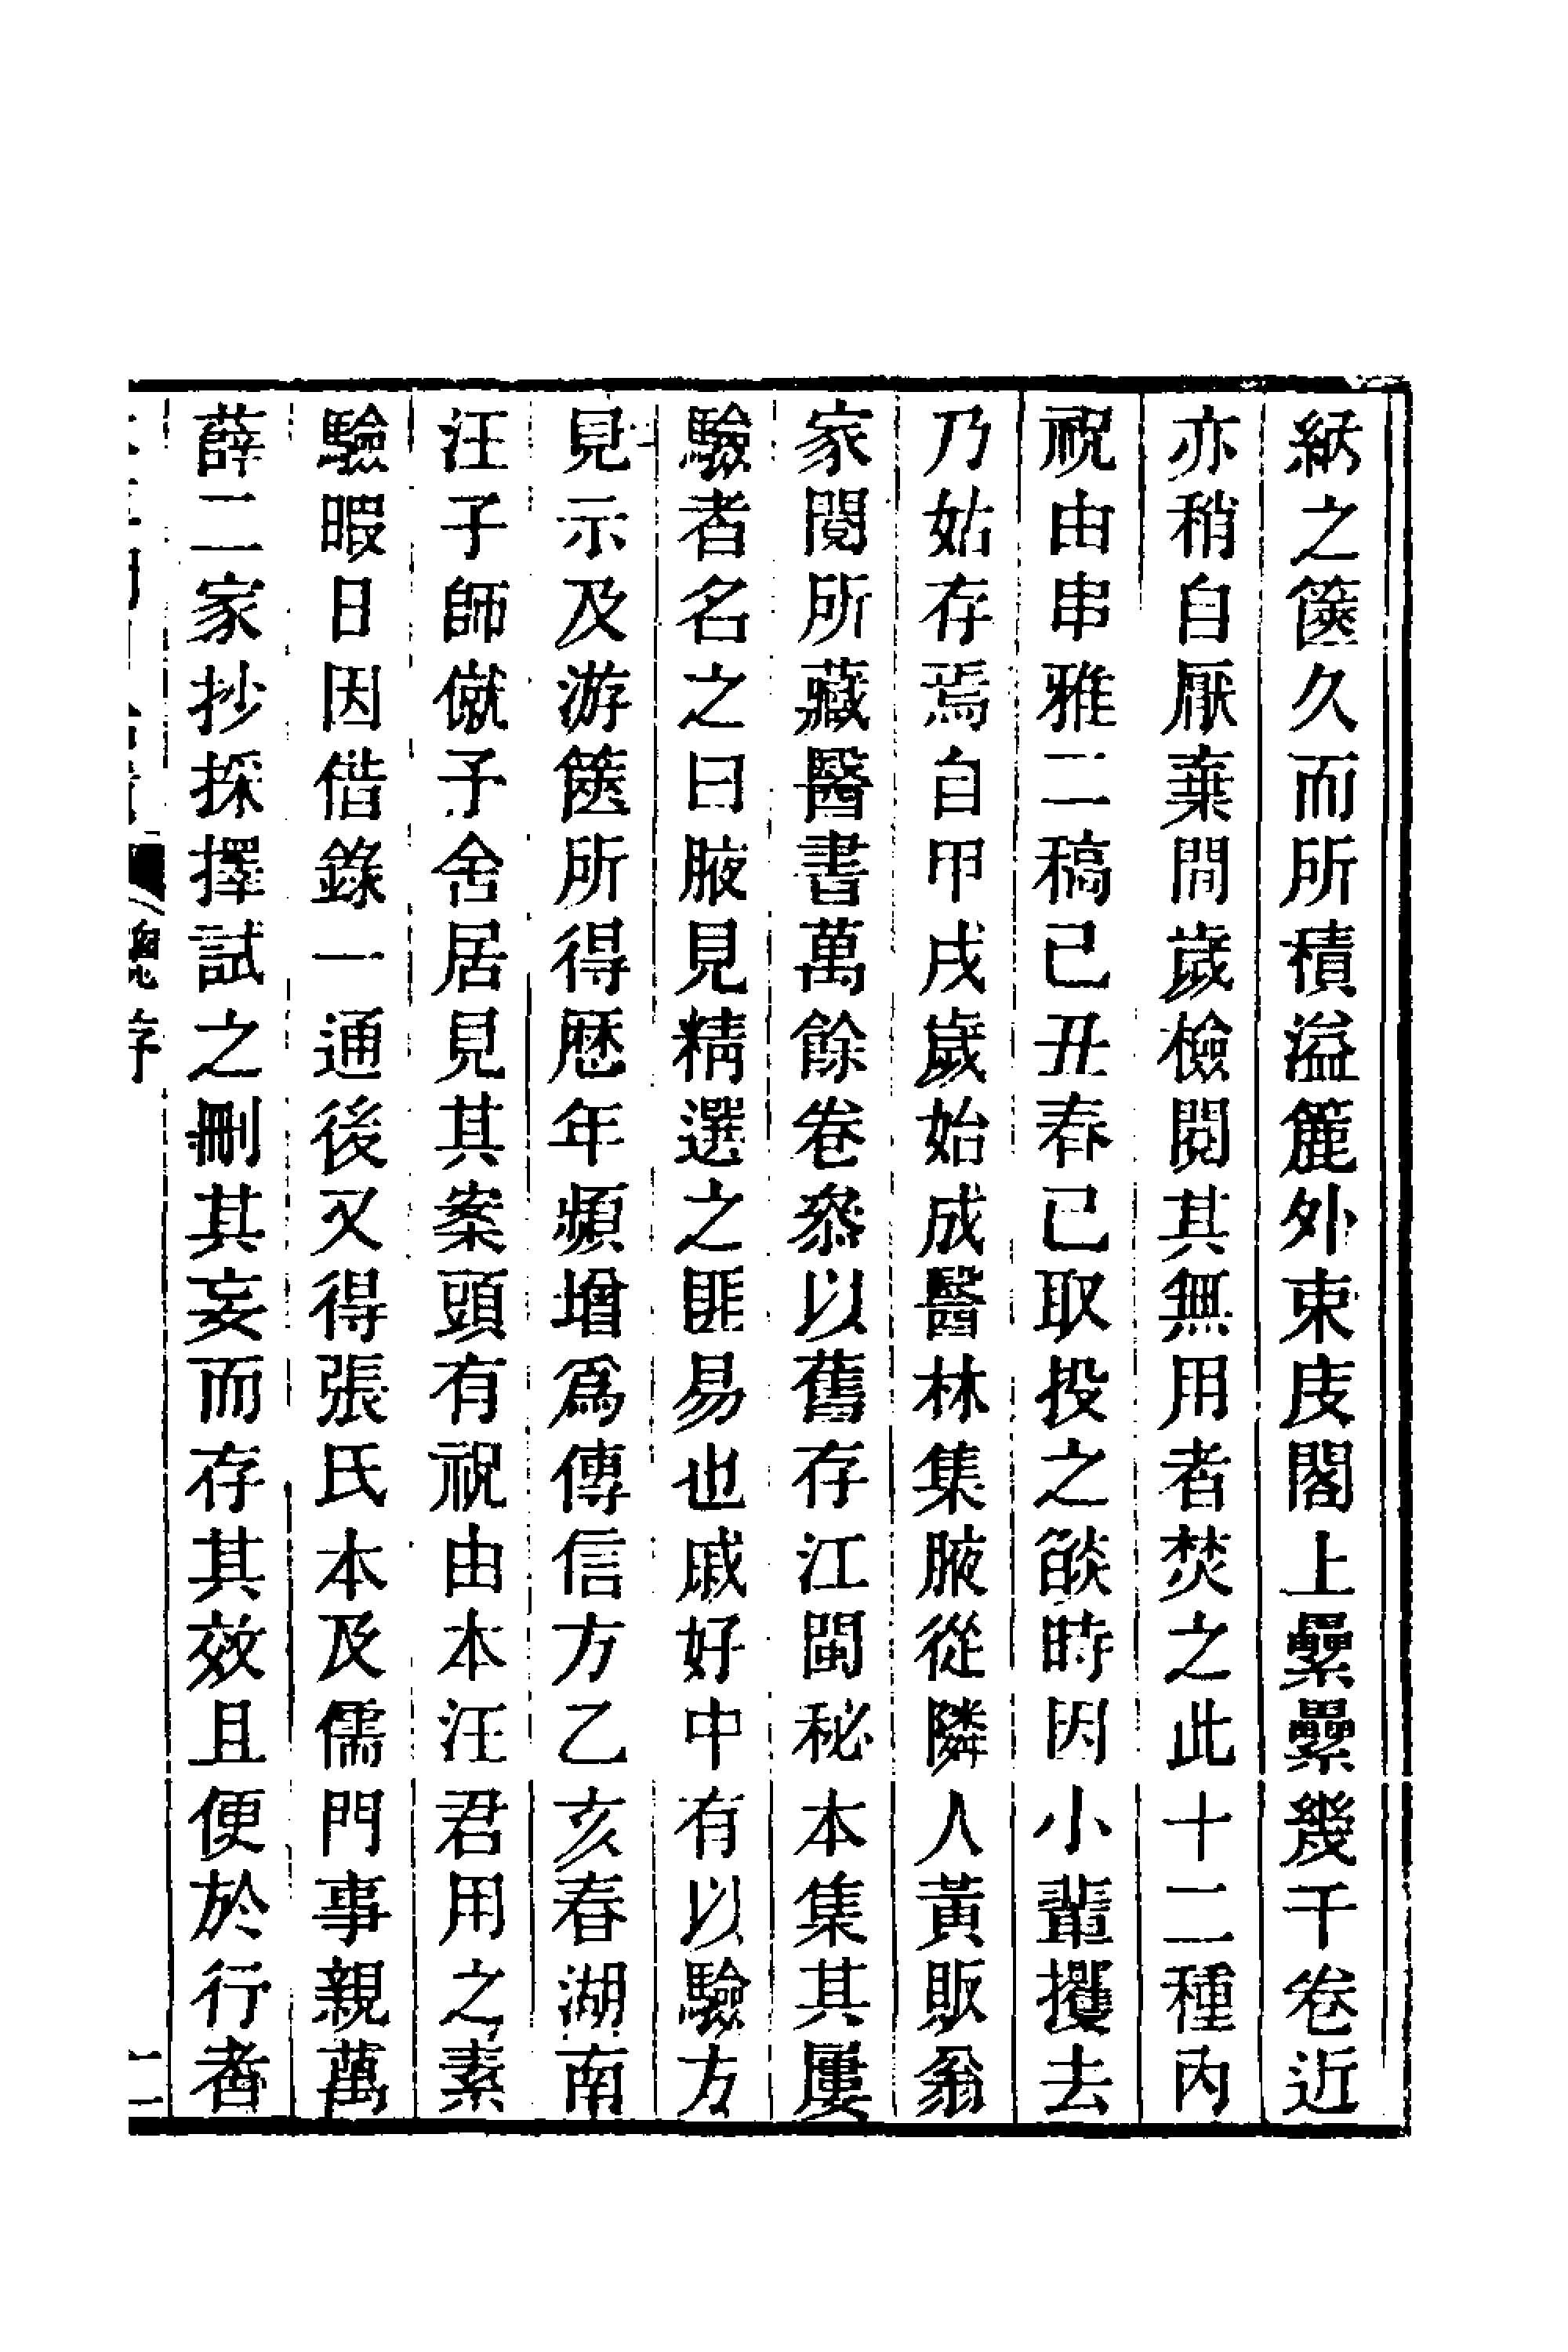 紙之篋久而所積溢簏外束庋閣上纍纍幾千卷近
亦稍自厭棄閒歲檢閱其無用者焚之此十二種內
祝由串雅二稿己丑春已取投之燄時因小輩攫去
乃姑存焉自甲戌歲始成醫林集腋從隣人黃販翁
家閱所藏醫書萬餘卷叅以舊存江閩秘本集其屢
驗者名之曰腋見精選之匪易也戚好中有以驗方
見示及游篋所得歷年頻增爲傳信方乙亥春湖南
汪子師僦予舍居見其案頭有祝由本汪君用之素
驗暇日因借錄一通後又得張氏本及儒門事親萬
薛二家抄採擇試之刪其妄而存其效且便於行者
總序
二